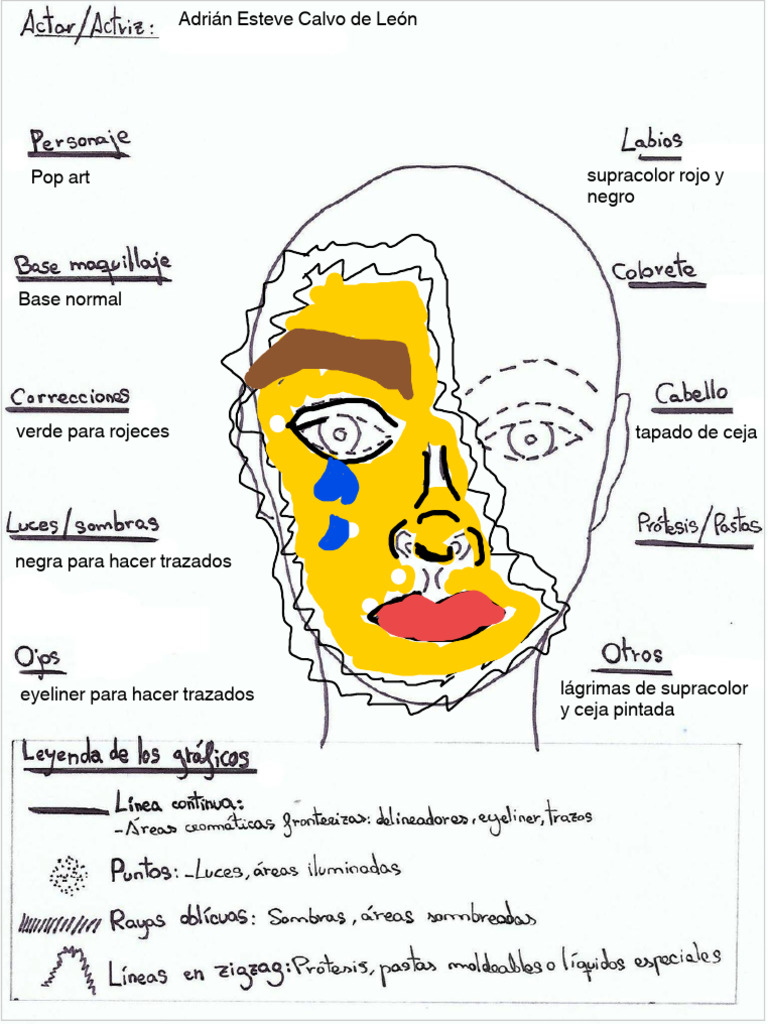 Actor/Actriz:
Adrián Esteve Calvo de León
Personaje
Pop art
Labios
supracolor rojo y
negro
Base maquillaje
Base normal
Colorete
Correcciones
verde para rojeces
Cabello
tapado de ceja
Luces/sombras
negra para hacer trazados
Prótesis/Pastas
Ojos
eyeliner para hacer trazados
Otros
lágrimas de supracolor
y ceja pintada
Leyenda de los gráficos
Línea continua:
-Áreas cromáticas fronterizas: delineadores, eyeliner, trazos
Puntos: -Luces, áreas iluminadas
Rayas oblícuas: Sombras, áreas sombreadas
Líneas en zigzag: Prótesis, pastas moldeables o líquidos especiales